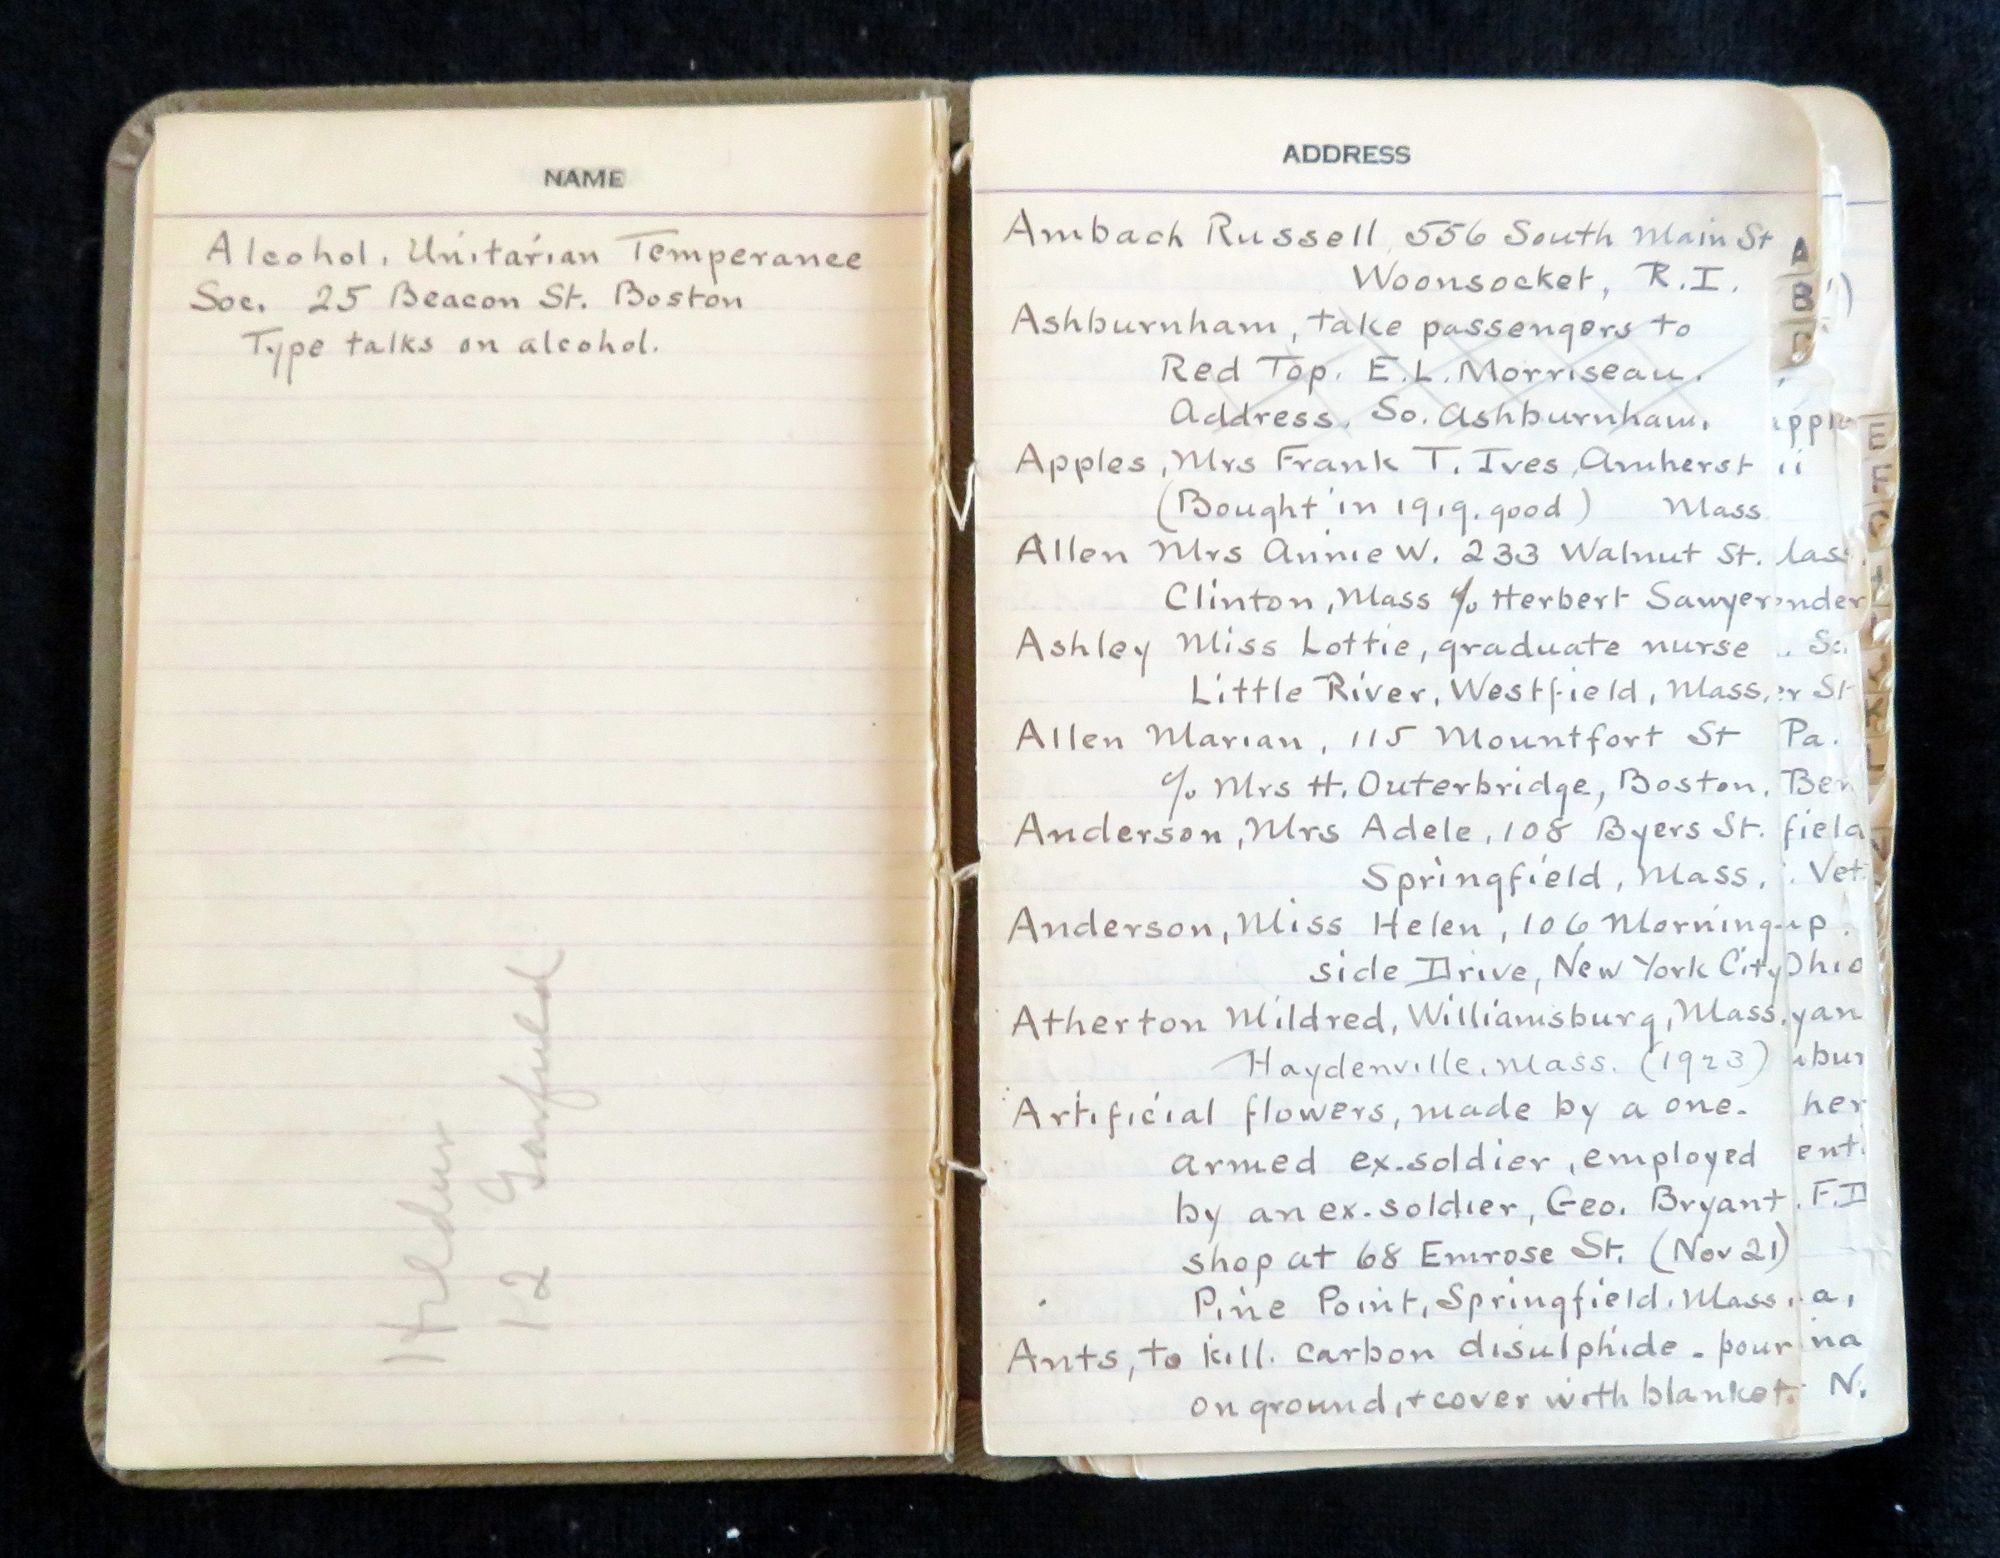 NAME
Alcohol, Unitarian Temperance
Soc. 25 Beacon St. Boston
Type talks on alcohol.
Holden
12 Garfield
ADDRESS
Ambach Russell, 556 South Main St
Woonsocket, R.I.
Ashburnham, take passengers to
Red Top. E.L. Morriseau.
Address. So. Ashburnham.
Apples, Mrs Frank T. Ives, Amherst
(Bought in 1919. good) Mass
Allen Mrs Annie W. 233 Walnut St.
Clinton, Mass c/o Herbert Sawyer
Ashley Miss Lottie, graduate nurse
Little River, Westfield, Mass.
Allen Marian, 115 Mountfort St
c/o Mrs H. Outerbridge, Boston.
Anderson, Mrs Adele, 108 Byers St.
Springfield, Mass.
Anderson, Miss Helen, 106 Morning-
side Drive, New York City
Atherton Mildred, Williamsburg, Mass.
Haydenville, Mass. (1923)
Artificial flowers, made by a one-
armed ex-soldier, employed
by an ex-soldier, Geo. Bryant.
shop at 68 Emrose St. (Nov 21)
Pine Point, Springfield. Mass.
Ants, to kill. carbon disulphide - pour
on ground, + cover with blanket.
A
B
C
E
F
G
H
Pa.
Ben
field
Vet.
Ohio
F.D
N.